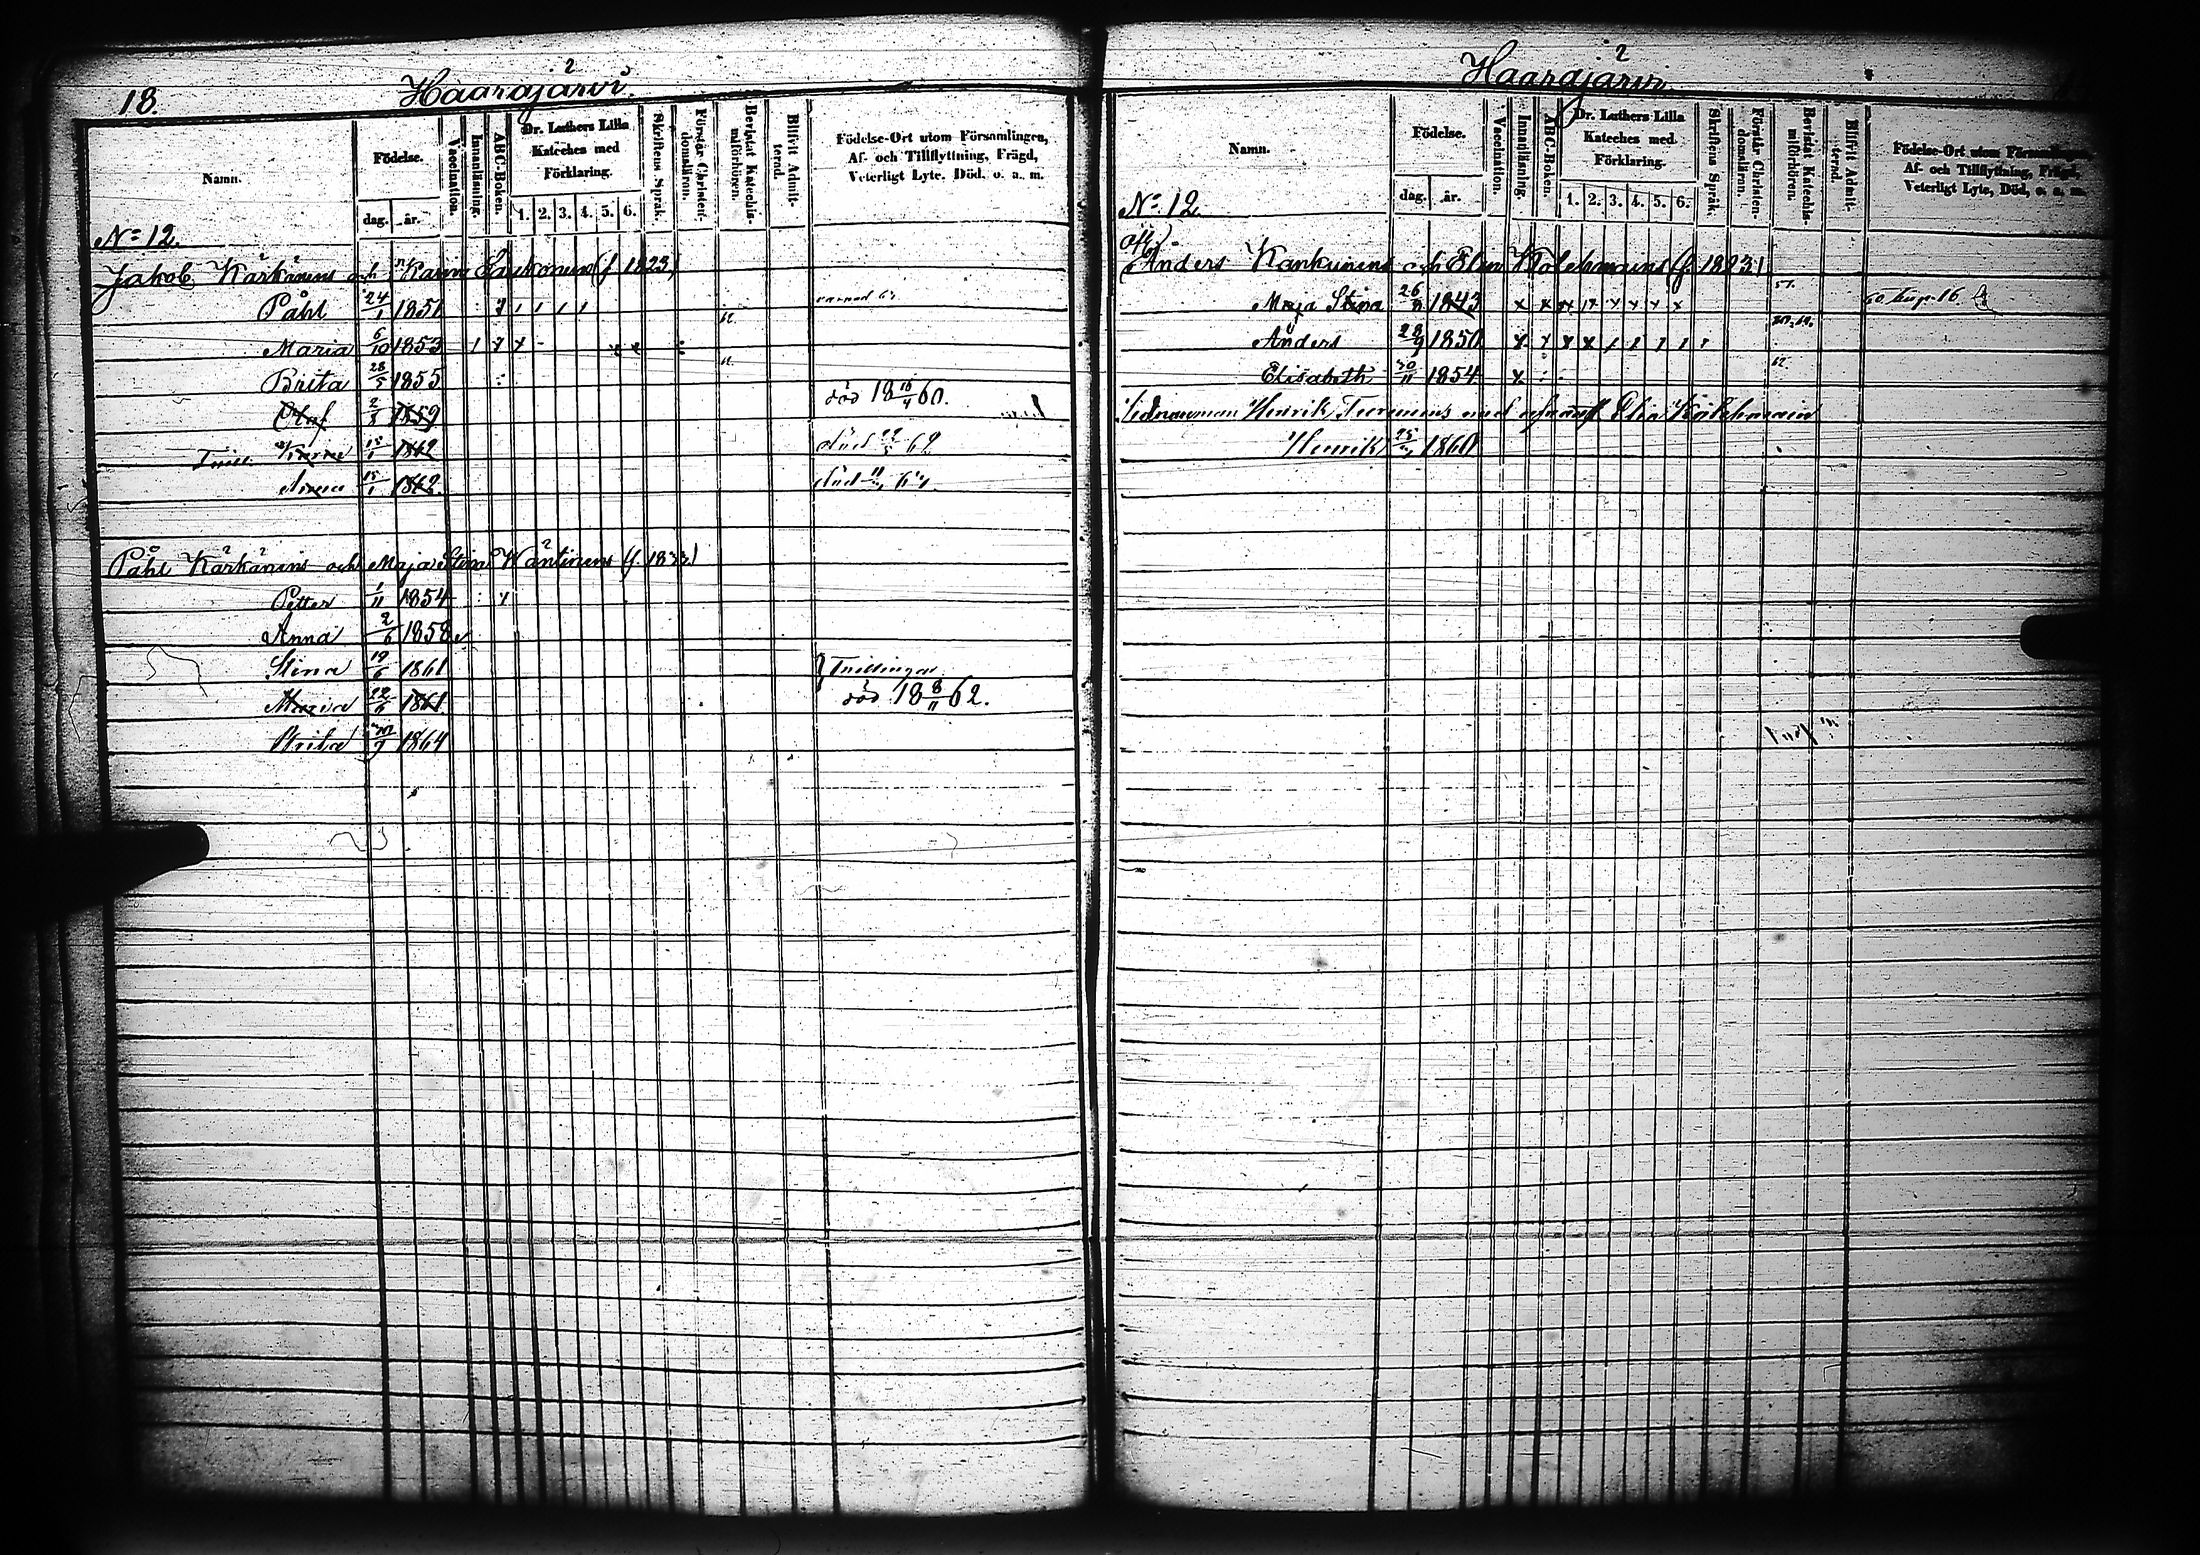 18.
Haarajärvi.
2
Namn.
Födelse.
dag. år.
Vaccination.
Innanläsning.
ABC-Boken.
Dr. Luthers Lilla Kateches med Förklaring.
1. 2. 3. 4. 5. 6.
Skriftens Språk.
Förstår Christendomsläran.
Bevistat Katechismiförhören.
Blifvit Admitterad.
Födelse-Ort utom Församlingen,
Af- och Tillflyttning, Frägd,
Veterligt Lyte, Död, o. a. m.
No 12.
Jakob Kärkäinens och Karin (f. 1823)
Påhl 24/1 1851
Maria 6/10 1853 62
Brita 28/5 1855
Olof 1859 död 18 60.
15/1 1862 död 62
Anna 15/1 1862. död
Påhl Kärkäinens och Maja Stina Wäntinens (f. 1833)
Petter 1/11 1854
Anna 2/6 1858
Stina 19/6 1861 Tvillingar
Maria 22/6 1861 död 18 8/11 62.
Brita 1864
Haarajärvi.
2
Namn.
Födelse.
dag. år.
Vaccination.
Innanläsning.
ABC-Boken.
Dr. Luthers Lilla Kateches med Förklaring.
1. 2. 3. 4. 5. 6.
Skriftens Språk.
Förstår Christendomsläran.
Bevistat Katechismiförhören.
Blifvit Admitterad.
Födelse-Ort utom Församlingen,
Af- och Tillflyttning, Frägd,
Veterligt Lyte, Död, o. a. m.
No 12
Anders och Elin Kolehmains (f. 1823)
Maja Stina 26 1843
Anders 28/9 1850
Elisabeth 1854 62
Henrik med Elin Kolehmain
Henrik 1860